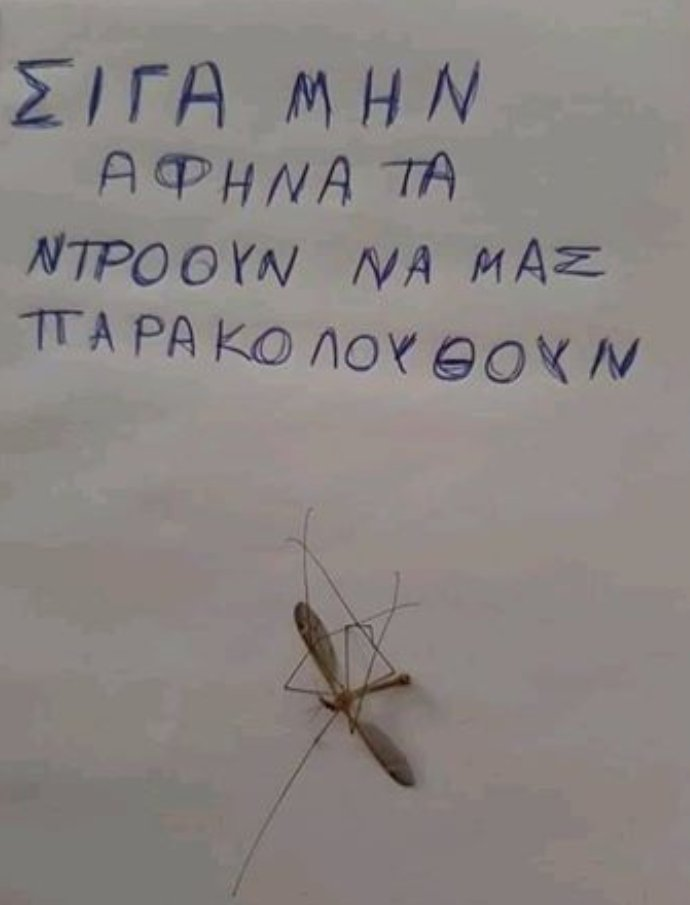 ΣΙΓΑ ΜΗΝ
ΑΦΗΝΑ ΤΑ
ΝΤΡΟΟΥΝ ΝΑ ΜΑΣ
ΠΑΡΑΚΟΛΟΥΘΟΥΝ